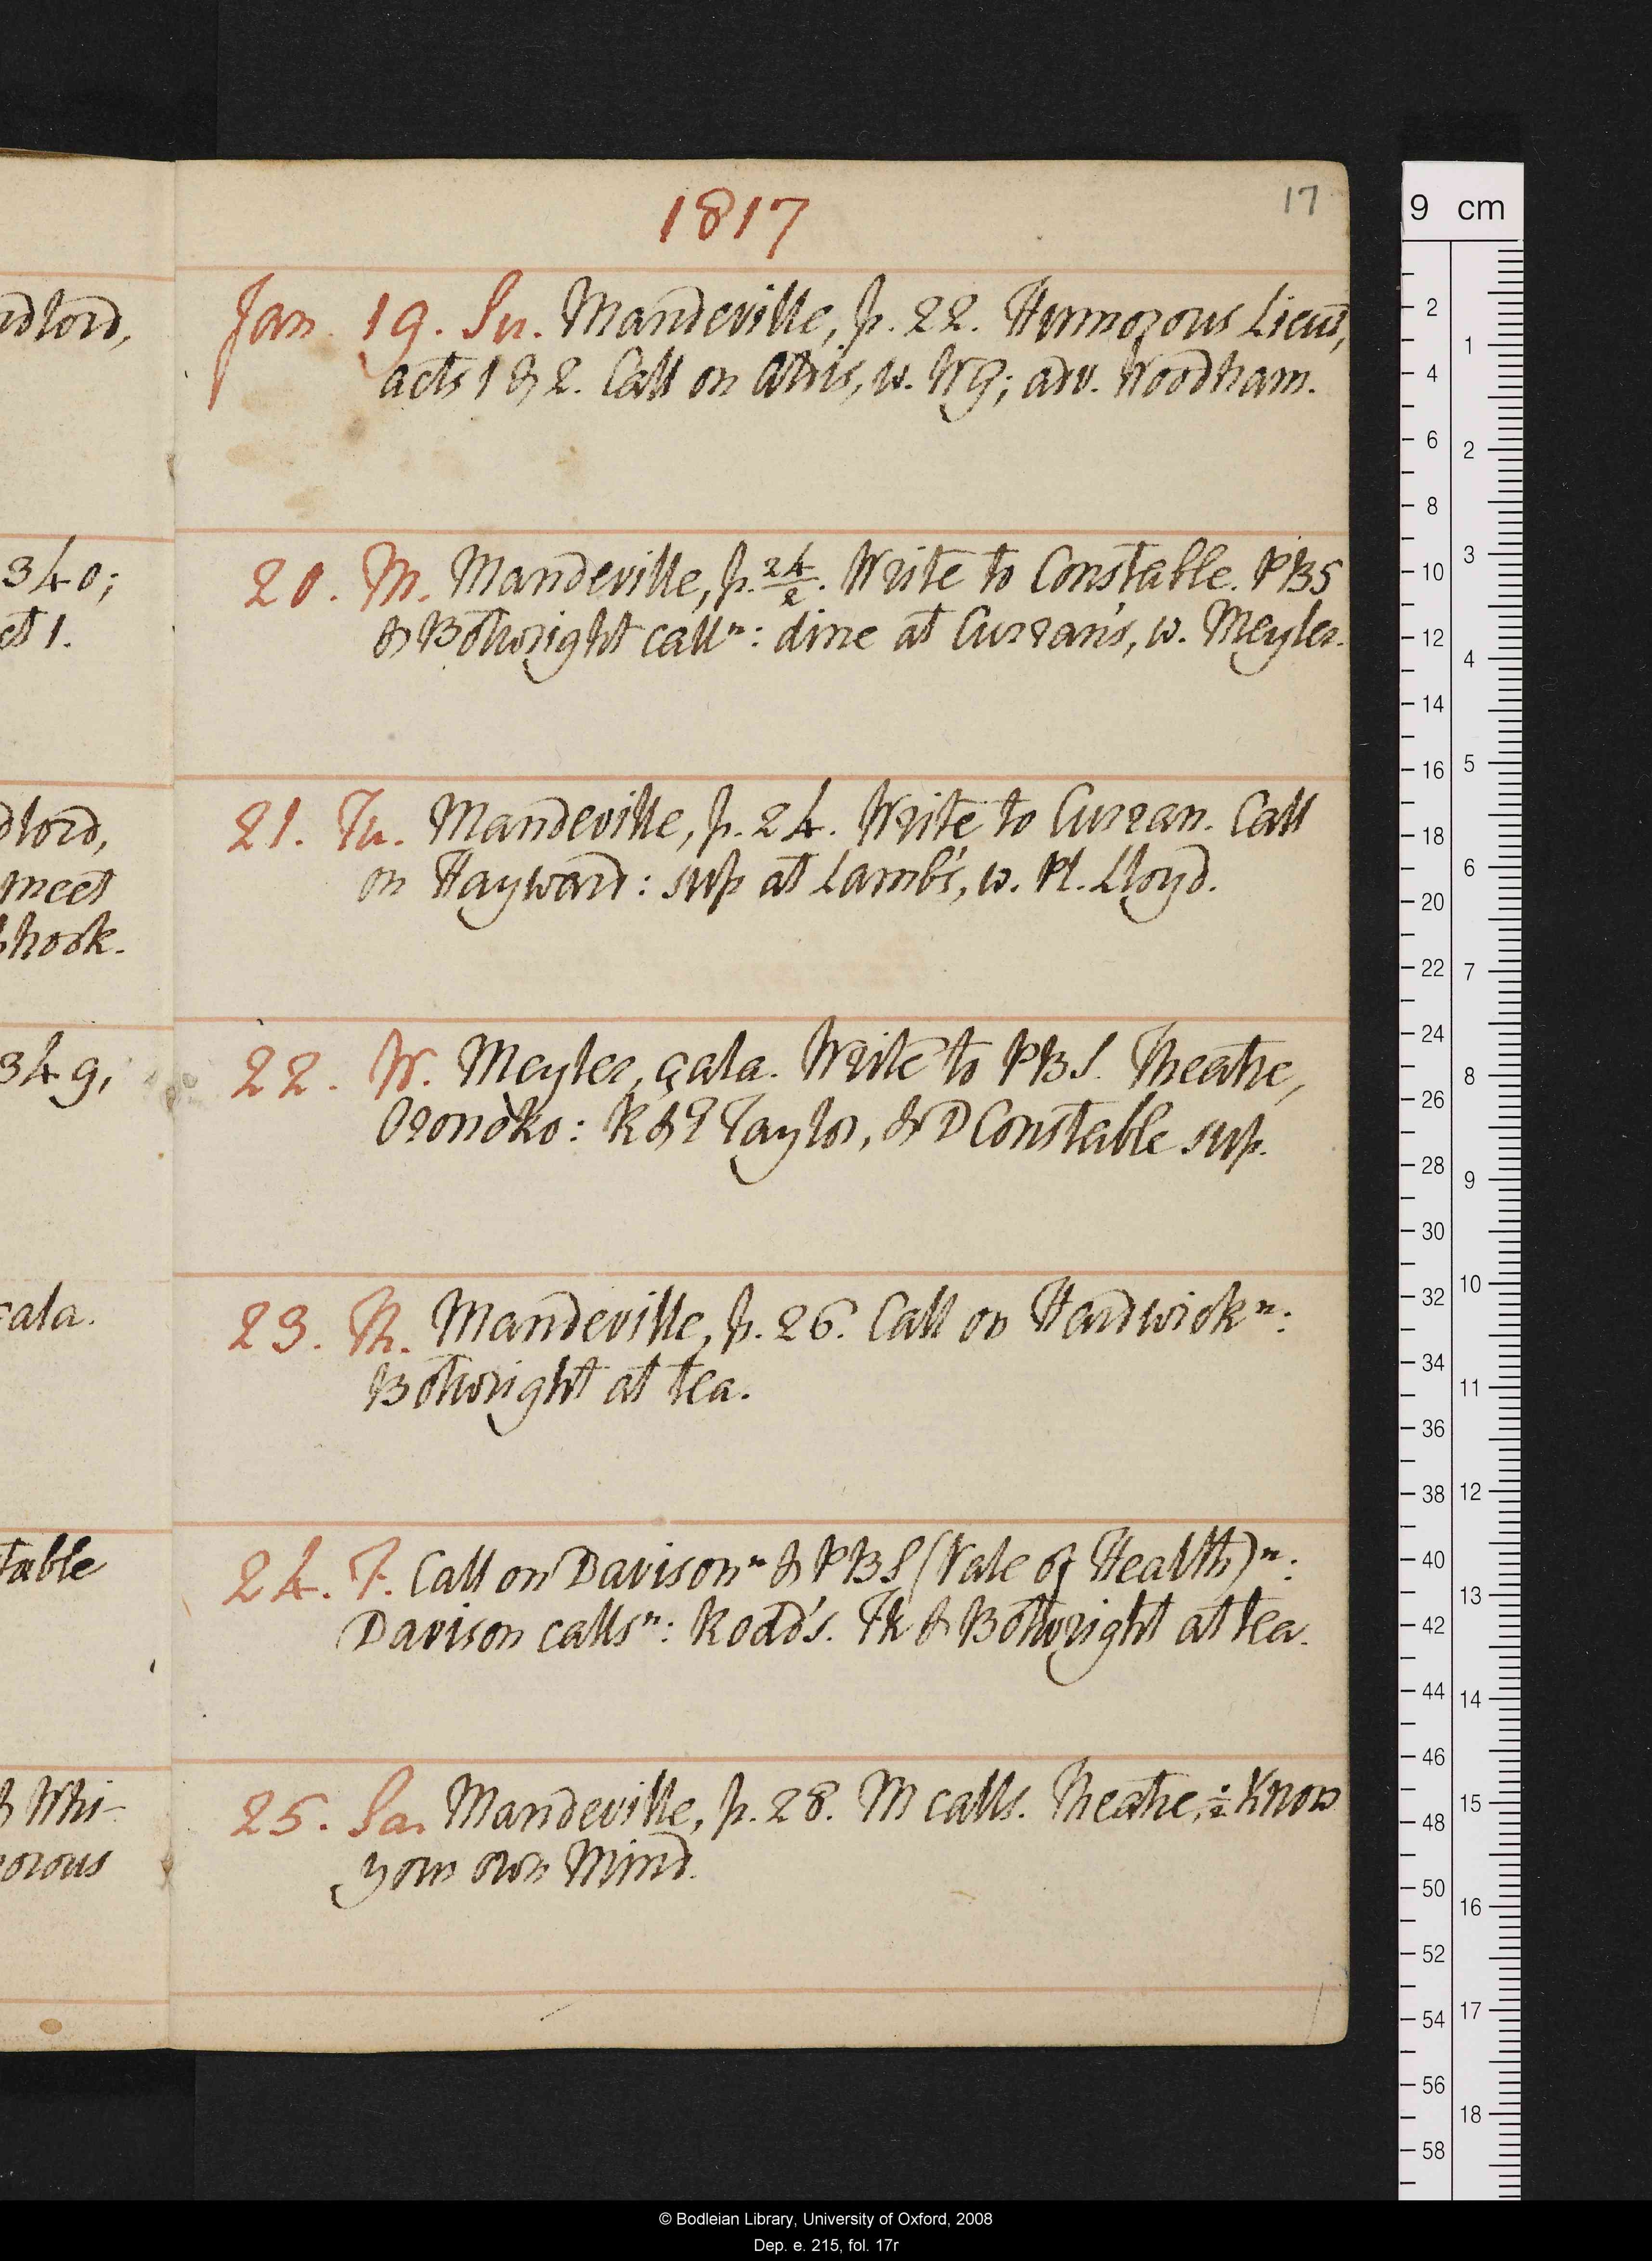 1817
17
Jan. 19. Su. Mandeville, p. 22. Humorous Lieut,
acts 1 & 2. Call on Alvis, w. WG; adv. Woodham.
20. M. Mandeville, p. 24/2. Write to Constable. PBS
& Bothwright calln: dine at Curran's, w. Meyler.
21. Tu. Mandeville, p. 24. Write to Curran. Call
on Hayward: sup at Lamb's, w. Pl. Lloyd.
22. W. Meyler, çala. Write to PBS. Theatre,
Oronoko: K & T Taylor, & D Constable sup.
23. Th. Mandeville, p. 26. Call on Hardwickn:
Botwright at tea.
24. F. Call on Davisonn & PBS (Vale of Health)n:
Davison callsn: Rodd's. TK & Botwright at tea.
25. Sa. Mandeville, p. 28. M calls. Theatre, ÷ Know
your own Mind.
ndlord,
340;
ct 1.
dlord,
meet
hook.
349,
cala.
table
& Whi-
orous
9 cm
2
4
6
8
10
12
14
16
18
20
22
24
26
28
30
32
34
36
38
40
42
44
46
48
50
52
54
56
58
1
2
3
4
5
6
7
8
9
10
11
12
13
14
15
16
17
18
© Bodleian Library, University of Oxford, 2008
Dep. e. 215, fol. 17r